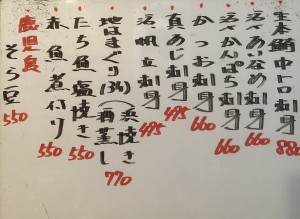 生本鮪中トロ刺身 880
活〆あいなめ刺身 660
活〆かんぱち刺身 660
かつお刺身 660
真あじ刺身 495
活帆立刺身 495
地はまぐり(3ケ)(浜焼き 酒蒸し) 770
たち魚塩焼き 550
赤魚煮付け 550
鹿児島 そら豆 550